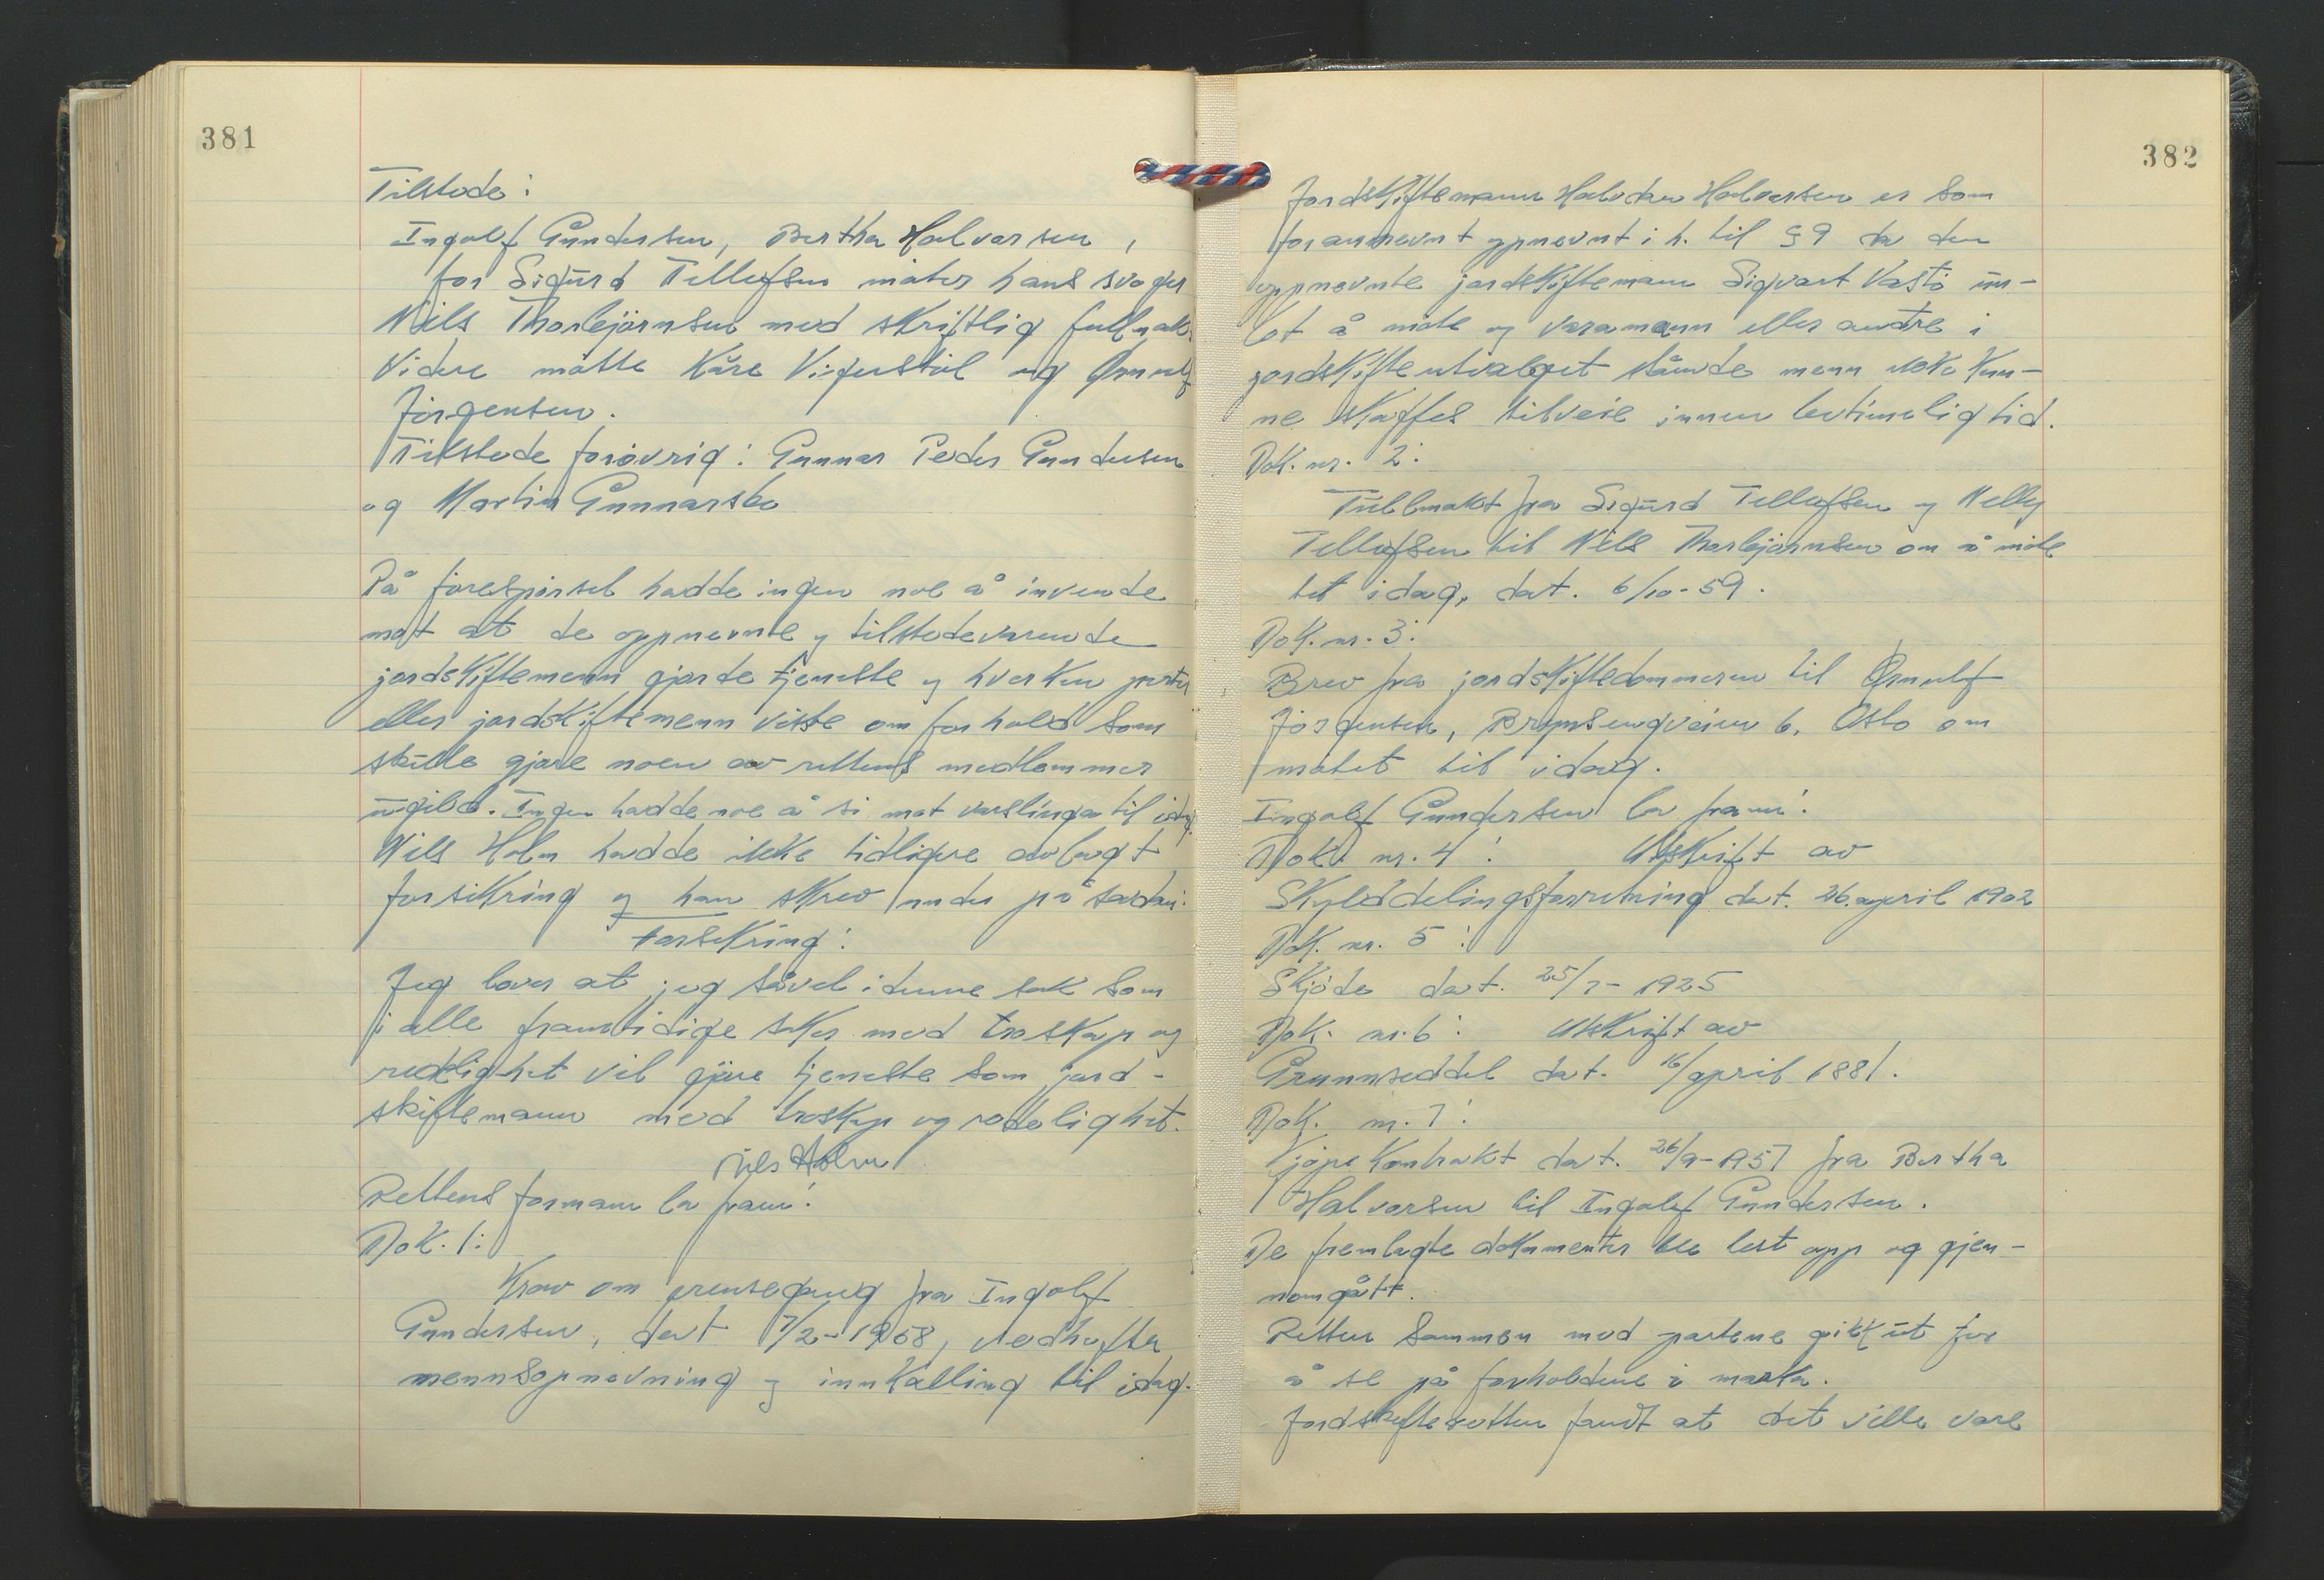 381
Tilstede:
Ingolf Gundersen, Bertha Halvorsen,
for Sigurd Tellefsen møter hans svoger
Nils Thorbjørnsen med skriftlig fullmakt.
Videre møtte Kåre Vigerstøl og Ørnulf
Jörgensen.
Tilstede forøvrig: Gunnar Peder Gundersen
og Martin Gunnarsbo
På forespørsel hadde ingen noe å invende
mot at de oppnevnte og tilstedeværende
jordskiftemenn gjorde tjeneste og hverken parter
eller jordskiftemenn visste om forhold som
skulle gjøre noen av rettens medlemmer
ugild. Ingen hadde noe å si mot varslinga til idag.
Nils Holm hadde ikke tidligere avlagt
forsikring og han skrev under på sådan:
Forsikring:
Jeg lover at jeg såvel i denne sak som
i alle framtidige saker med troskap og
redelighet vil gjøre tjeneste som jord-
skiftemann med troskap og redelighet.
Nils Holm
Rettens formann la fram:
Dok. 1:
Krav om grensegang fra Ingolf
Gundersen, dat 7/2-1958, vedheftet
mennsopnevning og innkalling til idag.
382
Jordskiftemann Halvdan Halvorsen er som
forannevnt opnevnt i h. til § 9 da den
oppnevnte jordskiftemann Sigvart Vastø un-
lot å møte og varamann eller andre i
jordskifteutvalget stående menn ikke kun-
ne skaffes tilveie innen betimelig tid.
Dok. nr. 2:
Fullmakt fra Sigurd Tellefsen og Nelly
Tellefsen til Nils Thorbjørnsen om å møte
til idag, dat. 6/10-59.
Dok. nr. 3:
Brev fra jordskiftedommeren til Ørnulf
Jörgensen, Brynsengveien 6, Oslo om
møtet til idag.
Ingolf Gundersen la fram:
Dok. nr. 4: Utskrift av
Skylddelingsforretning dat. 26. april 1902
Dok. nr. 5:
Skjøde dat. 25/7-1925
Dok. nr. 6: Utskrift av
Grunnseddel dat. 16/april 1881.
Dok. nr. 7:
Kjøpekontrakt dat. 26/9-1957 fra Bertha
Halvorsen til Ingolf Gundersen.
De fremlagte dokumenter ble lest opp og gjen-
nomgått.
Retten sammen med partene gikk ut for
å se på forholdene i marka.
Jordskifteretten fandt at det ville være